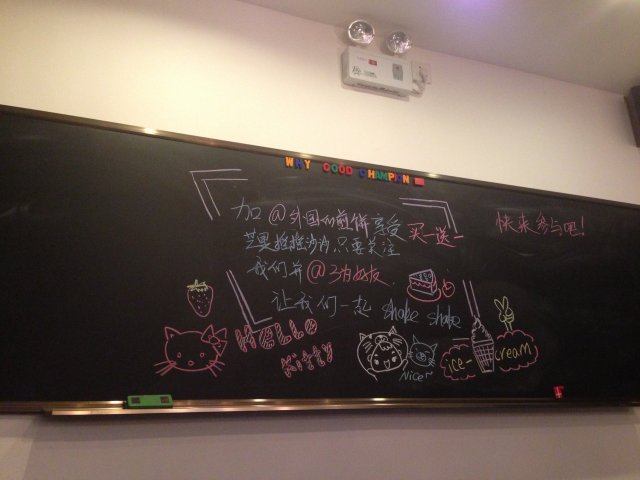 WHY GOOD CHAMPION
加@外国的煎饼享受买一送一
芝果摇摇沙冰只要关注
我们并@3为好友.
让我们一起 shake shake
快来参与吧!
HELLO
Kitty
Nice~
ice-cream